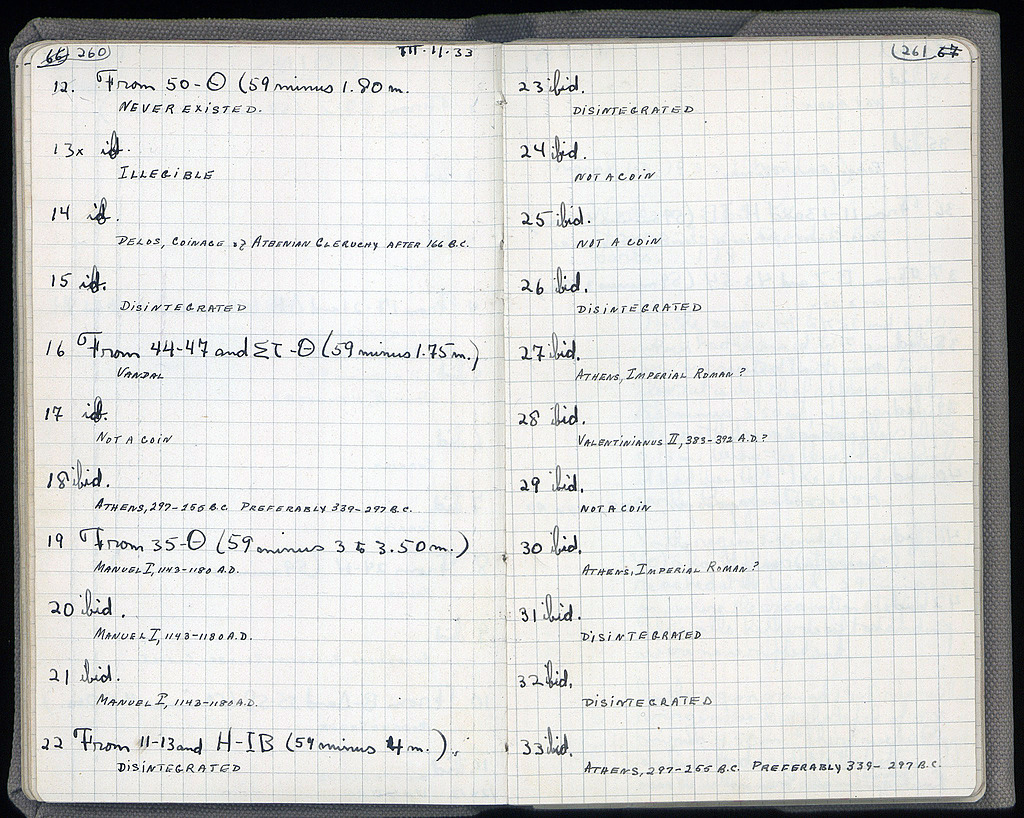 66 260
III-11-33
12. From 50-Θ (59 minus 1.80 m.
NEVER EXISTED.
13x id.
ILLEGIBLE
14 id.
DELOS, COINAGE OF ATHENIAN CLERUCHY AFTER 166 B.C.
15 id.
DISINTEGRATED
16 From 44-47 and ΣΤ-Θ (59 minus 1.75 m.)
VANDAL
17 id.
NOT A COIN
18 ibid.
ATHENS, 297-255 B.C. PREFERABLY 339-297 B.C.
19 From 35-Θ (59 minus 3 to 3.50 m.)
MANUEL I, 1143-1180 A.D.
20 ibid.
MANUEL I, 1143-1180 A.D.
21 ibid.
MANUEL I, 1143-1180 A.D.
22 From 11-13 and H-IB (59 minus 4 m.).
DISINTEGRATED
261 67
23 ibid.
DISINTEGRATED
24 ibid.
NOT A COIN
25 ibid.
NOT A COIN
26 ibid.
DISINTEGRATED
27 ibid.
ATHENS, IMPERIAL ROMAN?
28 ibid.
VALENTINIANUS II, 383-392 A.D.?
29 ibid.
NOT A COIN
30 ibid.
ATHENS, IMPERIAL ROMAN?
31 ibid.
DISINTEGRATED
32 ibid.
DISINTEGRATED
33 ibid.
ATHENS, 297-255 B.C. PREFERABLY 339-297 B.C.